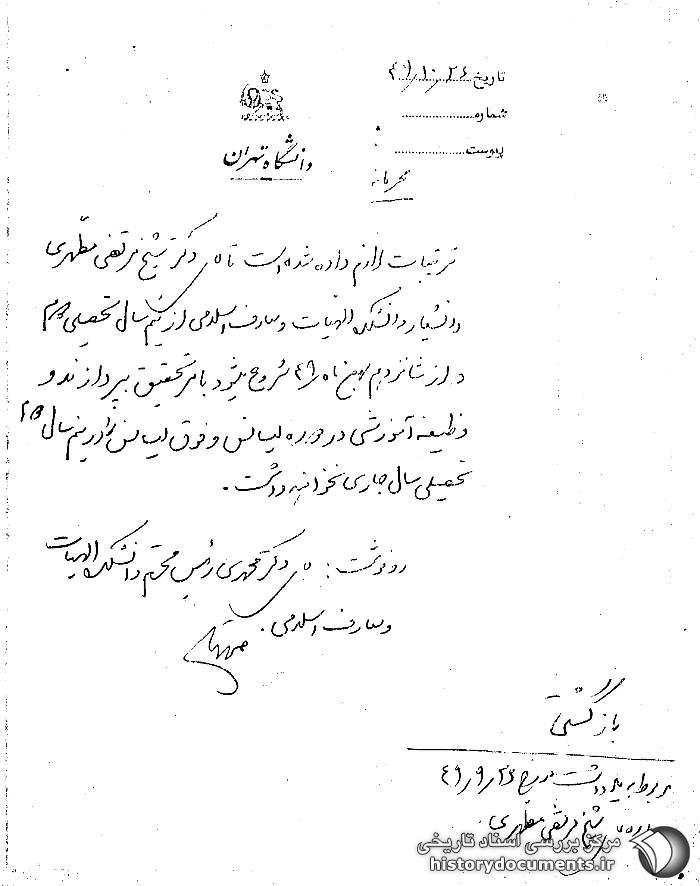 تاریخ ۴۹/۱۰/۲۶
شماره
پیوست
محرمانه
دانشگاه تهران
ترتیبات لازم داده شده است تا آقای دکتر شیخ مرتضی مطهری
دانشیار دانشکده الهیات و معارف اسلامی از نیم سال تحصیلی دوم
که از شانزدهم بهمن ماه ۴۹ شروع میشود بامر تحقیق بپردازند و
وظیفه آموزشی در دوره لیسانس و فوق لیسانس را در نیم سال دوم
تحصیلی سال جاری نخواهند داشت.
رونوشت: آقای دکتر محمدی رئیس محترم دانشکده الهیات
و معارف اسلامی.
بازگشتی
مربوط به یادداشت مورخ ۴۹/۹/۲۶
درباره شیخ مرتضی مطهری.
مرکز بررسی اسناد تاریخی
historydocuments.ir